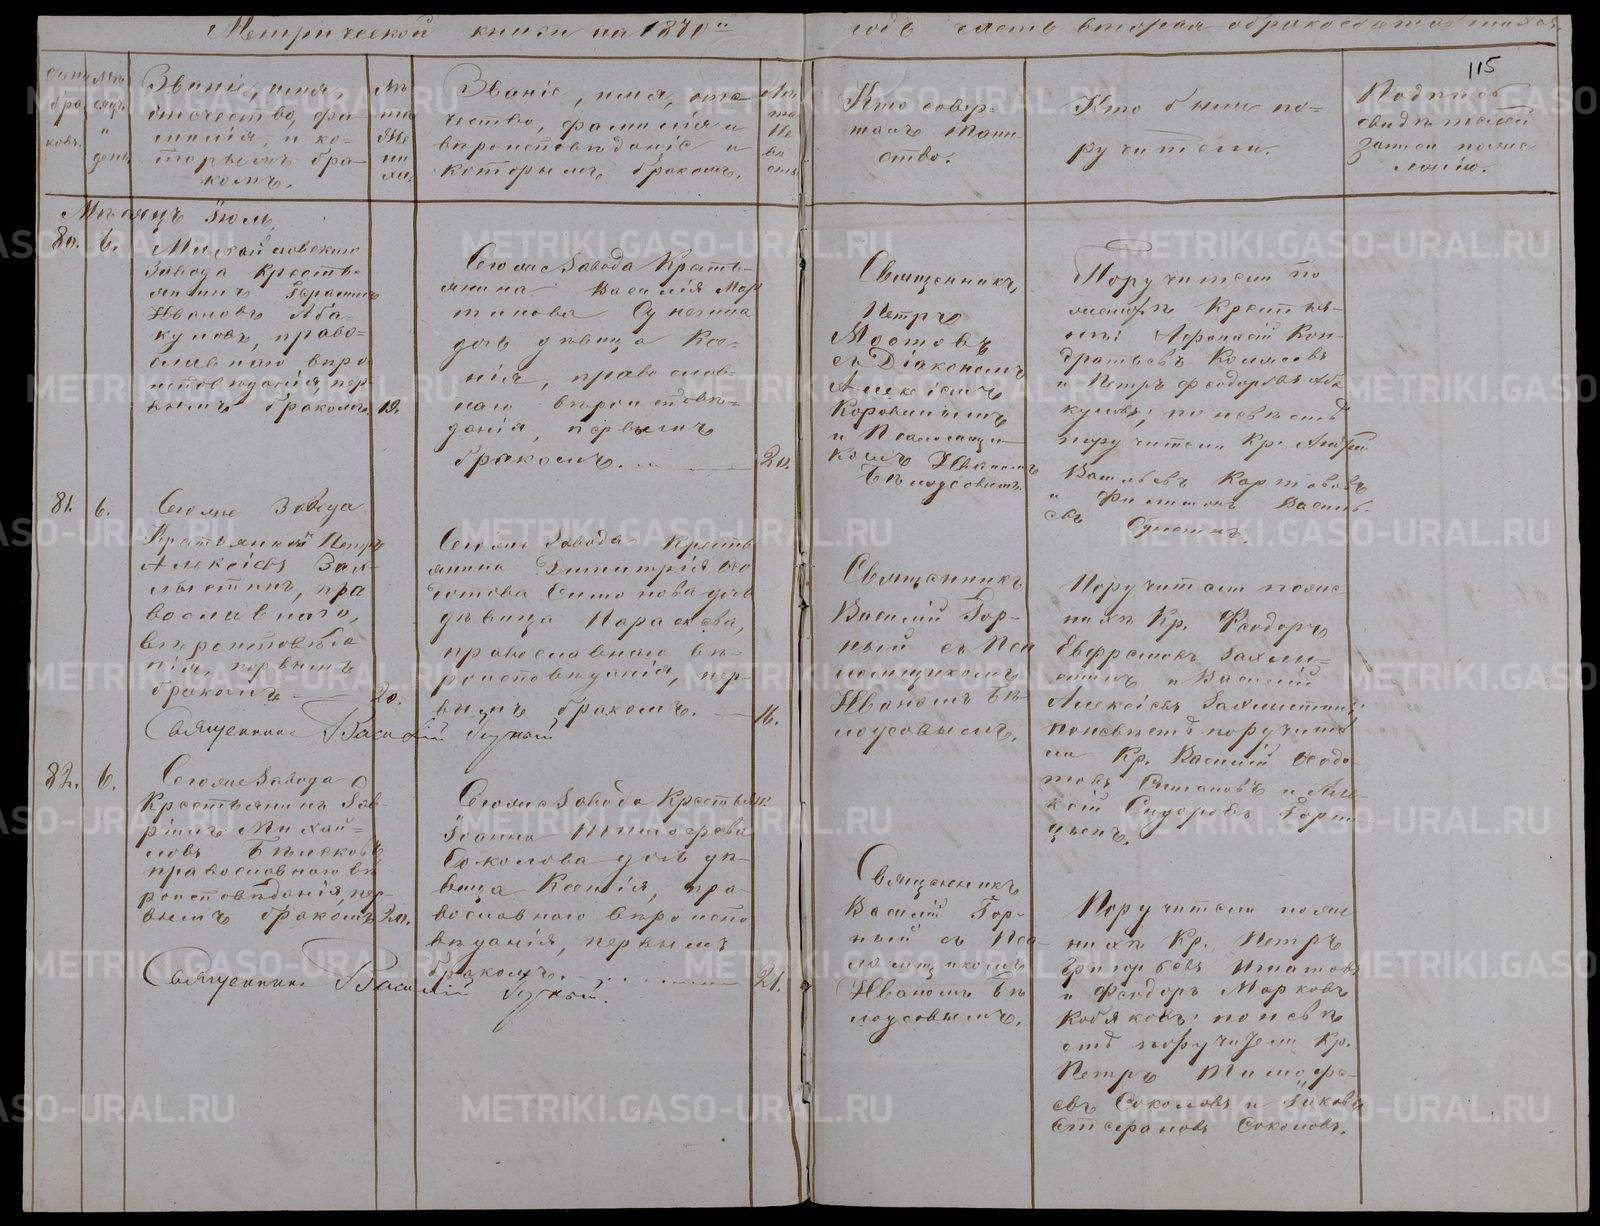 Метрической книги на 1870й
годъ часть вторая о бракосочетавшихся.
115
Счетъ браковъ.
Мѣсяцъ и день
Званіе, имя,
отчество, фа-
милія, и ко-
торымъ бра-
комъ.
Лѣта жениха.
Званіе, имя, оте-
чество, фамилія и
вѣроисповѣданіе и
которымъ бракомъ.
Лѣта невѣсты
Кто совер-
шалъ таин-
ство.
Кто были по-
ручители.
Подпись
свидѣтелей
записи по же-
ланію.
Мѣсяцъ Іюль
80. 6.
Михайловскаго
Завода Кресть-
янинъ Герасимъ
Ивановъ Аба-
кумовъ, право-
славнаго вѣро
исповѣданія пер
вымъ бракомъ. 19.
Сего же Завода Кресть-
янина Василія Мар
тинова
дочь дѣвица Ксе-
нія, православ-
наго вѣроисповѣ-
данія, первымъ
бракомъ. 20.
Священникъ
Петръ
Мостовъ
съ Діакономъ
Алексіемъ
Коровинымъ
и Псаломщи-
комъ Иваномъ
Бѣлоусовымъ.
Поручители по
женихѣ Кресть-
яне: Афонасій Кон-
дратьевъ Колясовъ
и Петръ Феодоровъ Аба
кумовъ; по невѣстѣ
поручители Кр. Андрей
Васильевъ Картавовъ
и Филиппъ Василь-
евъ
81. 6.
Сего же Завода
Крестьянинъ Петръ
Алексіевъ Зах-
мыстинъ, пра
вославнаго,
вѣроисповѣда
нія, первымъ
бракомъ 20.
Сего же Завода Кресть
янина Димитрія Фео
дотова Симонова дочь
дѣвица Параскева,
православнаго вѣ-
роисповѣданія, пер-
вымъ бракомъ. 16.
Священникъ
Василій Гор-
ный съ Пса
ломщикомъ
Иваномъ Бѣ-
лоусовымъ.
Поручители по же-
нихѣ Кр. Феодоръ
Евфремовъ
и Василій
Алексіевъ
по невѣстѣ поручите
ли Кр. Василій Феодо-
товъ Симановъ и Алек
сѣй Сидоровъ
Священникъ Василій Горный
82. 6.
Сего же Завода
Крестьянинъ Гав-
ріилъ Михай-
ловъ Бѣлековъ
православнаго вѣ
роисповѣданія, пер-
вымъ бракомъ 20.
Сего же Завода Крестьян
Іоанна Тимофеева
Соколова дочь дѣ-
вица Ксенія, пра-
вославнаго вѣроиспо
вѣданія, первымъ
бракомъ. 21.
Священникъ
Василій Гор-
ный съ Пса-
ломщикомъ
Иваномъ Бѣ
лоусовымъ.
Поручители по же
нихѣ Кр. Петръ
Григорьевъ Игнатовъ
и Феодоръ Марковъ
Кобяковъ: по невѣ
стѣ поручители Кр.
Петръ Тимофе-
евъ Соколовъ и Іаковъ
Стефановъ Соколовъ.
Священникъ Василій Горный.
METRIKI.GASO-URAL.RU